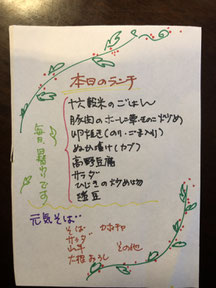 本日のランチ
十六穀米のごはん
豚肉のホーレン草の炒め
卵焼き(のり・ごま入り)
ぬか漬け(カブ)
高野豆腐
サラダ
ひじきの炒め物
煮豆
毎日暑いです
元気そば
そば かぼちゃ
サラダ
山芋 その他
大根おろし